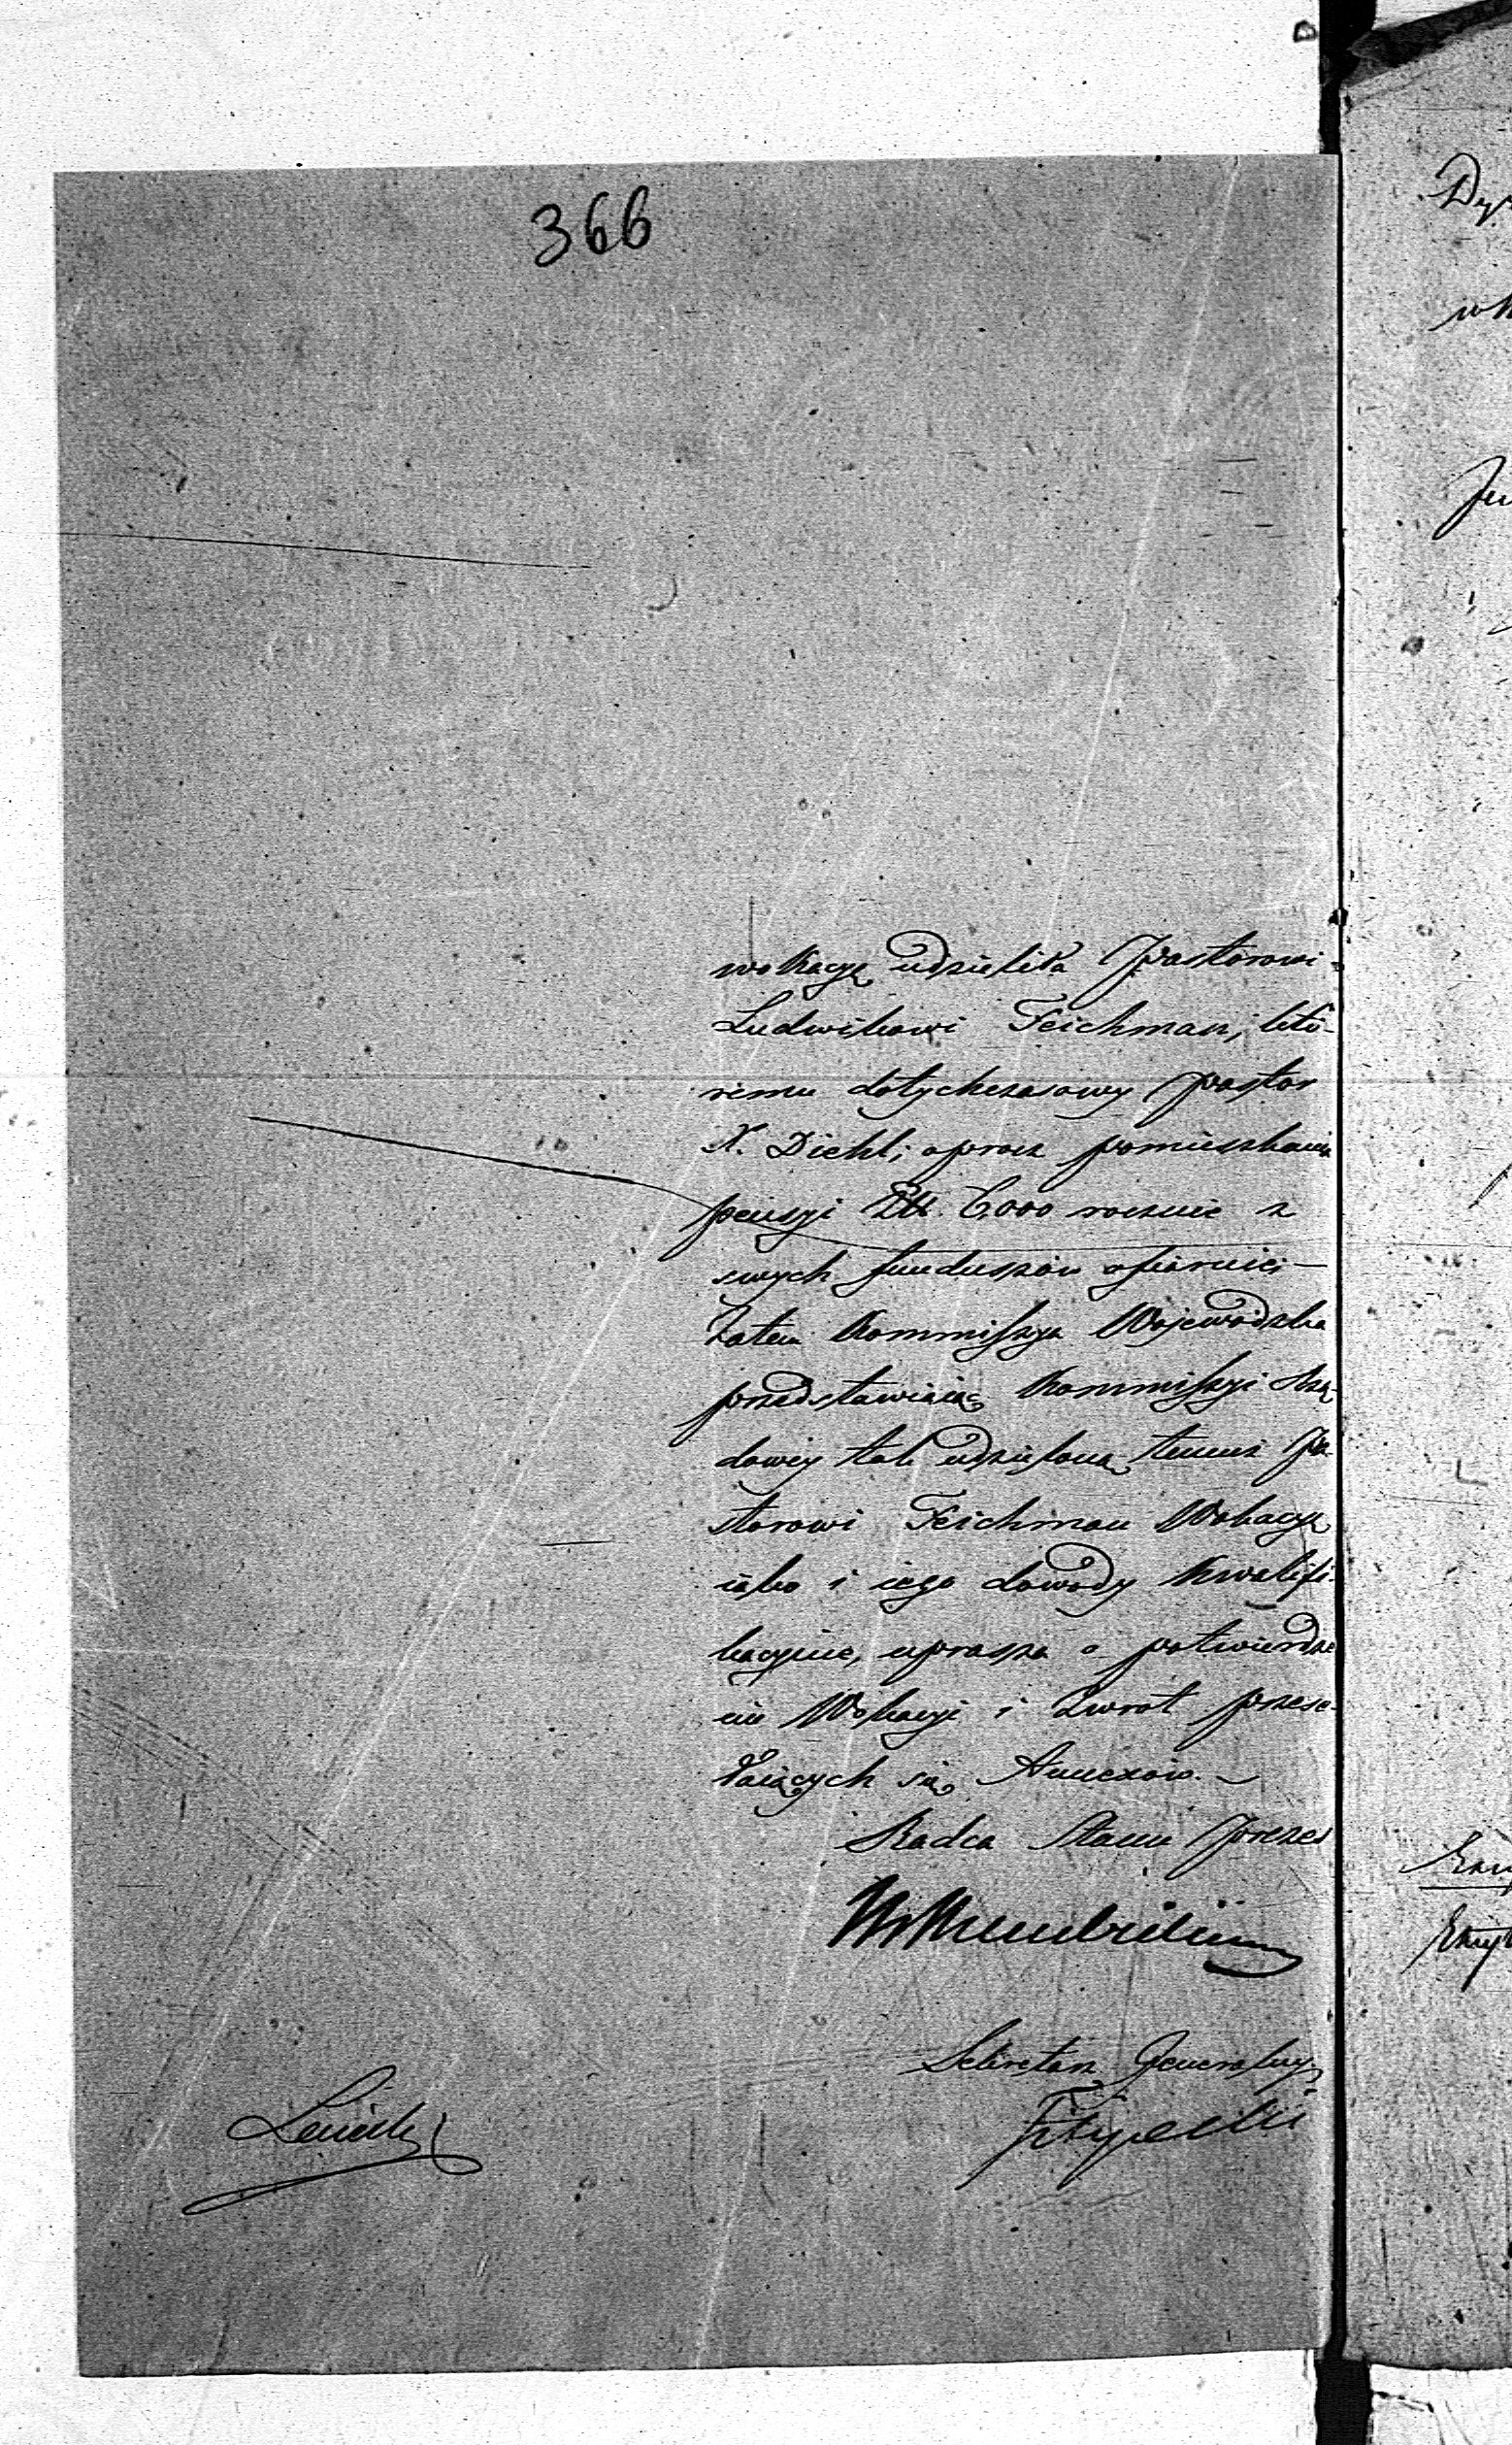 366
wokacyę udzieliła Pastorowi
Ludwikowi Teichman, któ-
remu dotychczasowy Pastor
X. Diehl, oprócz pomieszkania
pensyi Złt. 6,000 rocznie z
swych funduszów ofiaruie,—
Zatem Kommissya Wojewódzka
przedstawiaiąc Kommissyi Rzą-
dowey tak udzieloną temuż Pa-
storowi Teichman Wokacyę
iako i iego dowody kwalifi-
kacyine, uprasza o potwierdze
nie Wokacyi i zwrot przese-
łaiących się Annexów.—
Radca Stanu Prezes
Sekretarz Generalny
Filipecki